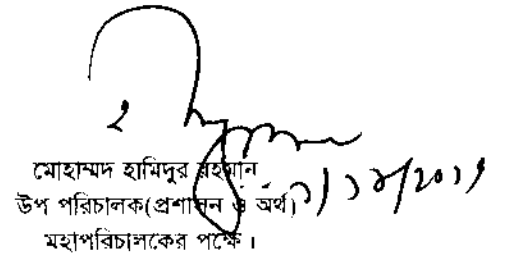 মোহাম্মদ হামিদুর রহমান
উপ পরিচালক(প্রশাসন ও অর্থ)
মহাপরিচালকের পক্ষে।